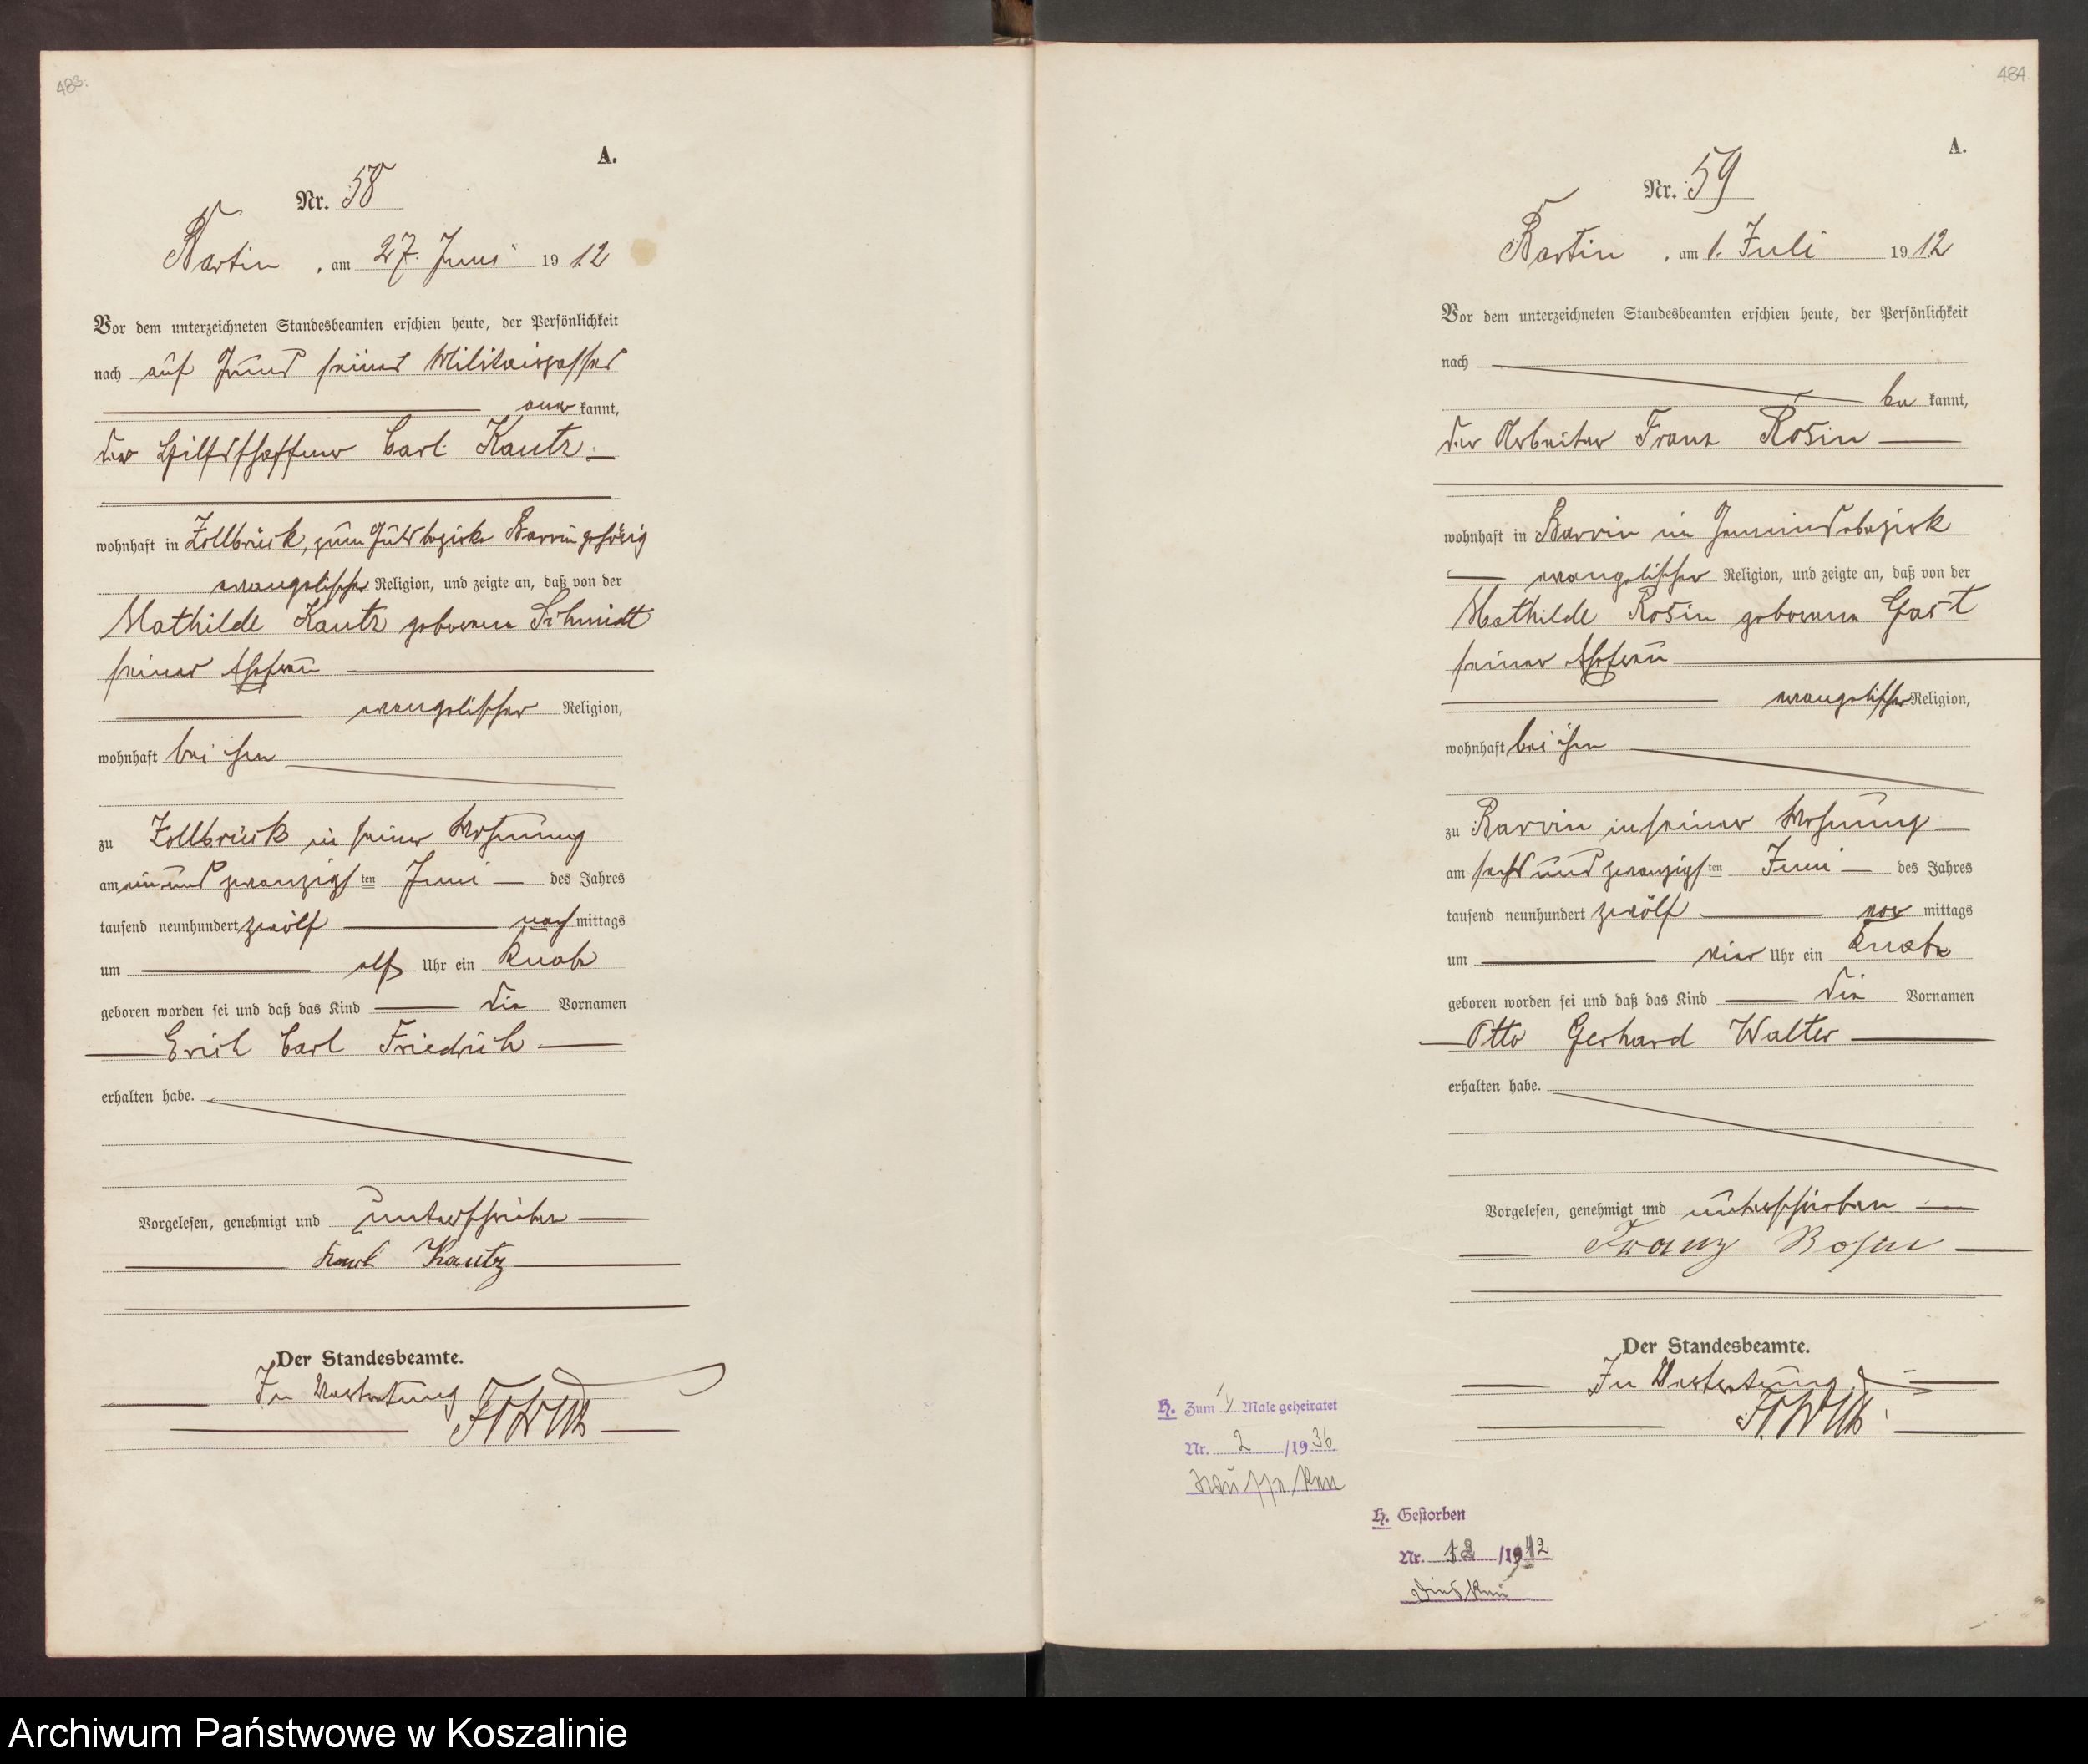 483.
A.
Nr. 58
Bartin, am 27. Juni 1912
Vor dem unterzeichneten Standesbeamten erschien heute, der Persönlichkeit
nach auf Grund seines Militairpasses
aner kannt,
der Hilfsschaffner Carl Kautz
wohnhaft in Zollbrück, zum Gutsbezirke Barvin gehörig
evangelischer Religion, und zeigte an, daß von der
Mathilde Kautz geborenen Schmidt
seiner Ehefrau
evangelischer Religion,
wohnhaft bei ihm
zu Zollbrück in seiner Wohnung
am ein und zwanzigsten Juni des Jahres
tausend neunhundert zwölf nachmittags
um elf Uhr ein Knabe
geboren worden sei und daß das Kind die Vornamen
Erich Carl Friedrich
erhalten habe.
Vorgelesen, genehmigt und unterschrieben
Karl Kautz
Der Standesbeamte.
In Vertretung
484.
A.
Nr. 59
Bartin, am 1. Juli 1912
Vor dem unterzeichneten Standesbeamten erschien heute, der Persönlichkeit
nach
be kannt,
der Arbeiter Franz Rosin
wohnhaft in Barvin im Gemeindebezirk
evangelischer Religion, und zeigte an, daß von der
Mathilde Rosin geborenen Gast
seiner Ehefrau
evangelischer Religion,
wohnhaft bei ihm
zu Barvin in seiner Wohnung
am sechs und zwanzigsten Juni des Jahres
tausend neunhundert zwölf vor mittags
um vier Uhr ein Knabe
geboren worden sei und daß das Kind die Vornamen
Otto Gerhard Walter
erhalten habe.
Vorgelesen, genehmigt und unterschrieben
Franz Rosin
Der Standesbeamte.
In Vertretung
H. Zum 1 Male geheiratet
Nr. 2 /1936
H. Gestorben
Nr. /1942
Archiwum Państwowe w Koszalinie